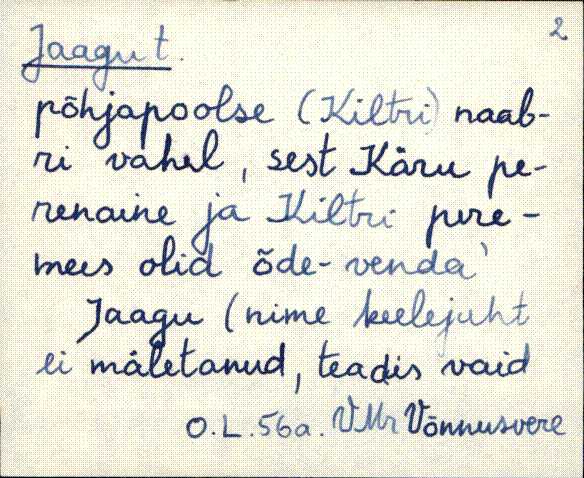 2
Jaagut.
põhjapoolse (Kiltri) naab-
ri vahel, sest Käru pe-
renaine ja Kiltri pere-
mees olid õde-venda'
Jaagu (nime keelejuht
ei mäletanud, teadis vaid
O.L.56a. VMr Võnnusvere